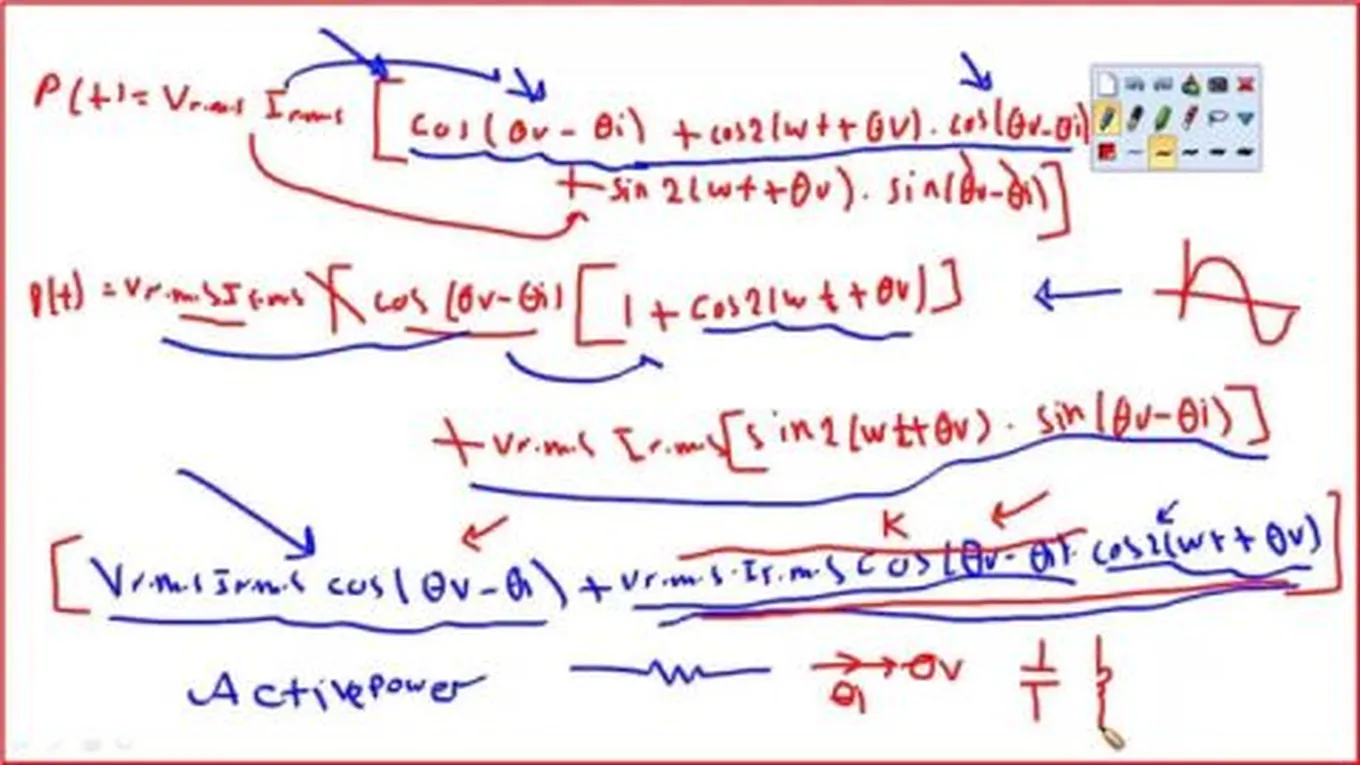 P(t) = Vr.m.s Ir.m.s [cos(θv - θi) + cos2(wt + θv) . cos(θv-θi)
+ sin 2(wt + θv) . sin(θv-θi)]
p(t) = vr.m.s Ir.m.s [cos (θv-θi) [1 + cos2(wt + θv)]
+ vr.m.s Ir.m.s [sin2(wt+θv) . sin(θv-θi)]
K
[Vr.m.s Ir.m.s cos(θv-θi) + vr.m.s.Ir.m.s cos(θv-θi). cos2(wt + θv)]
Activepower
θv
θi